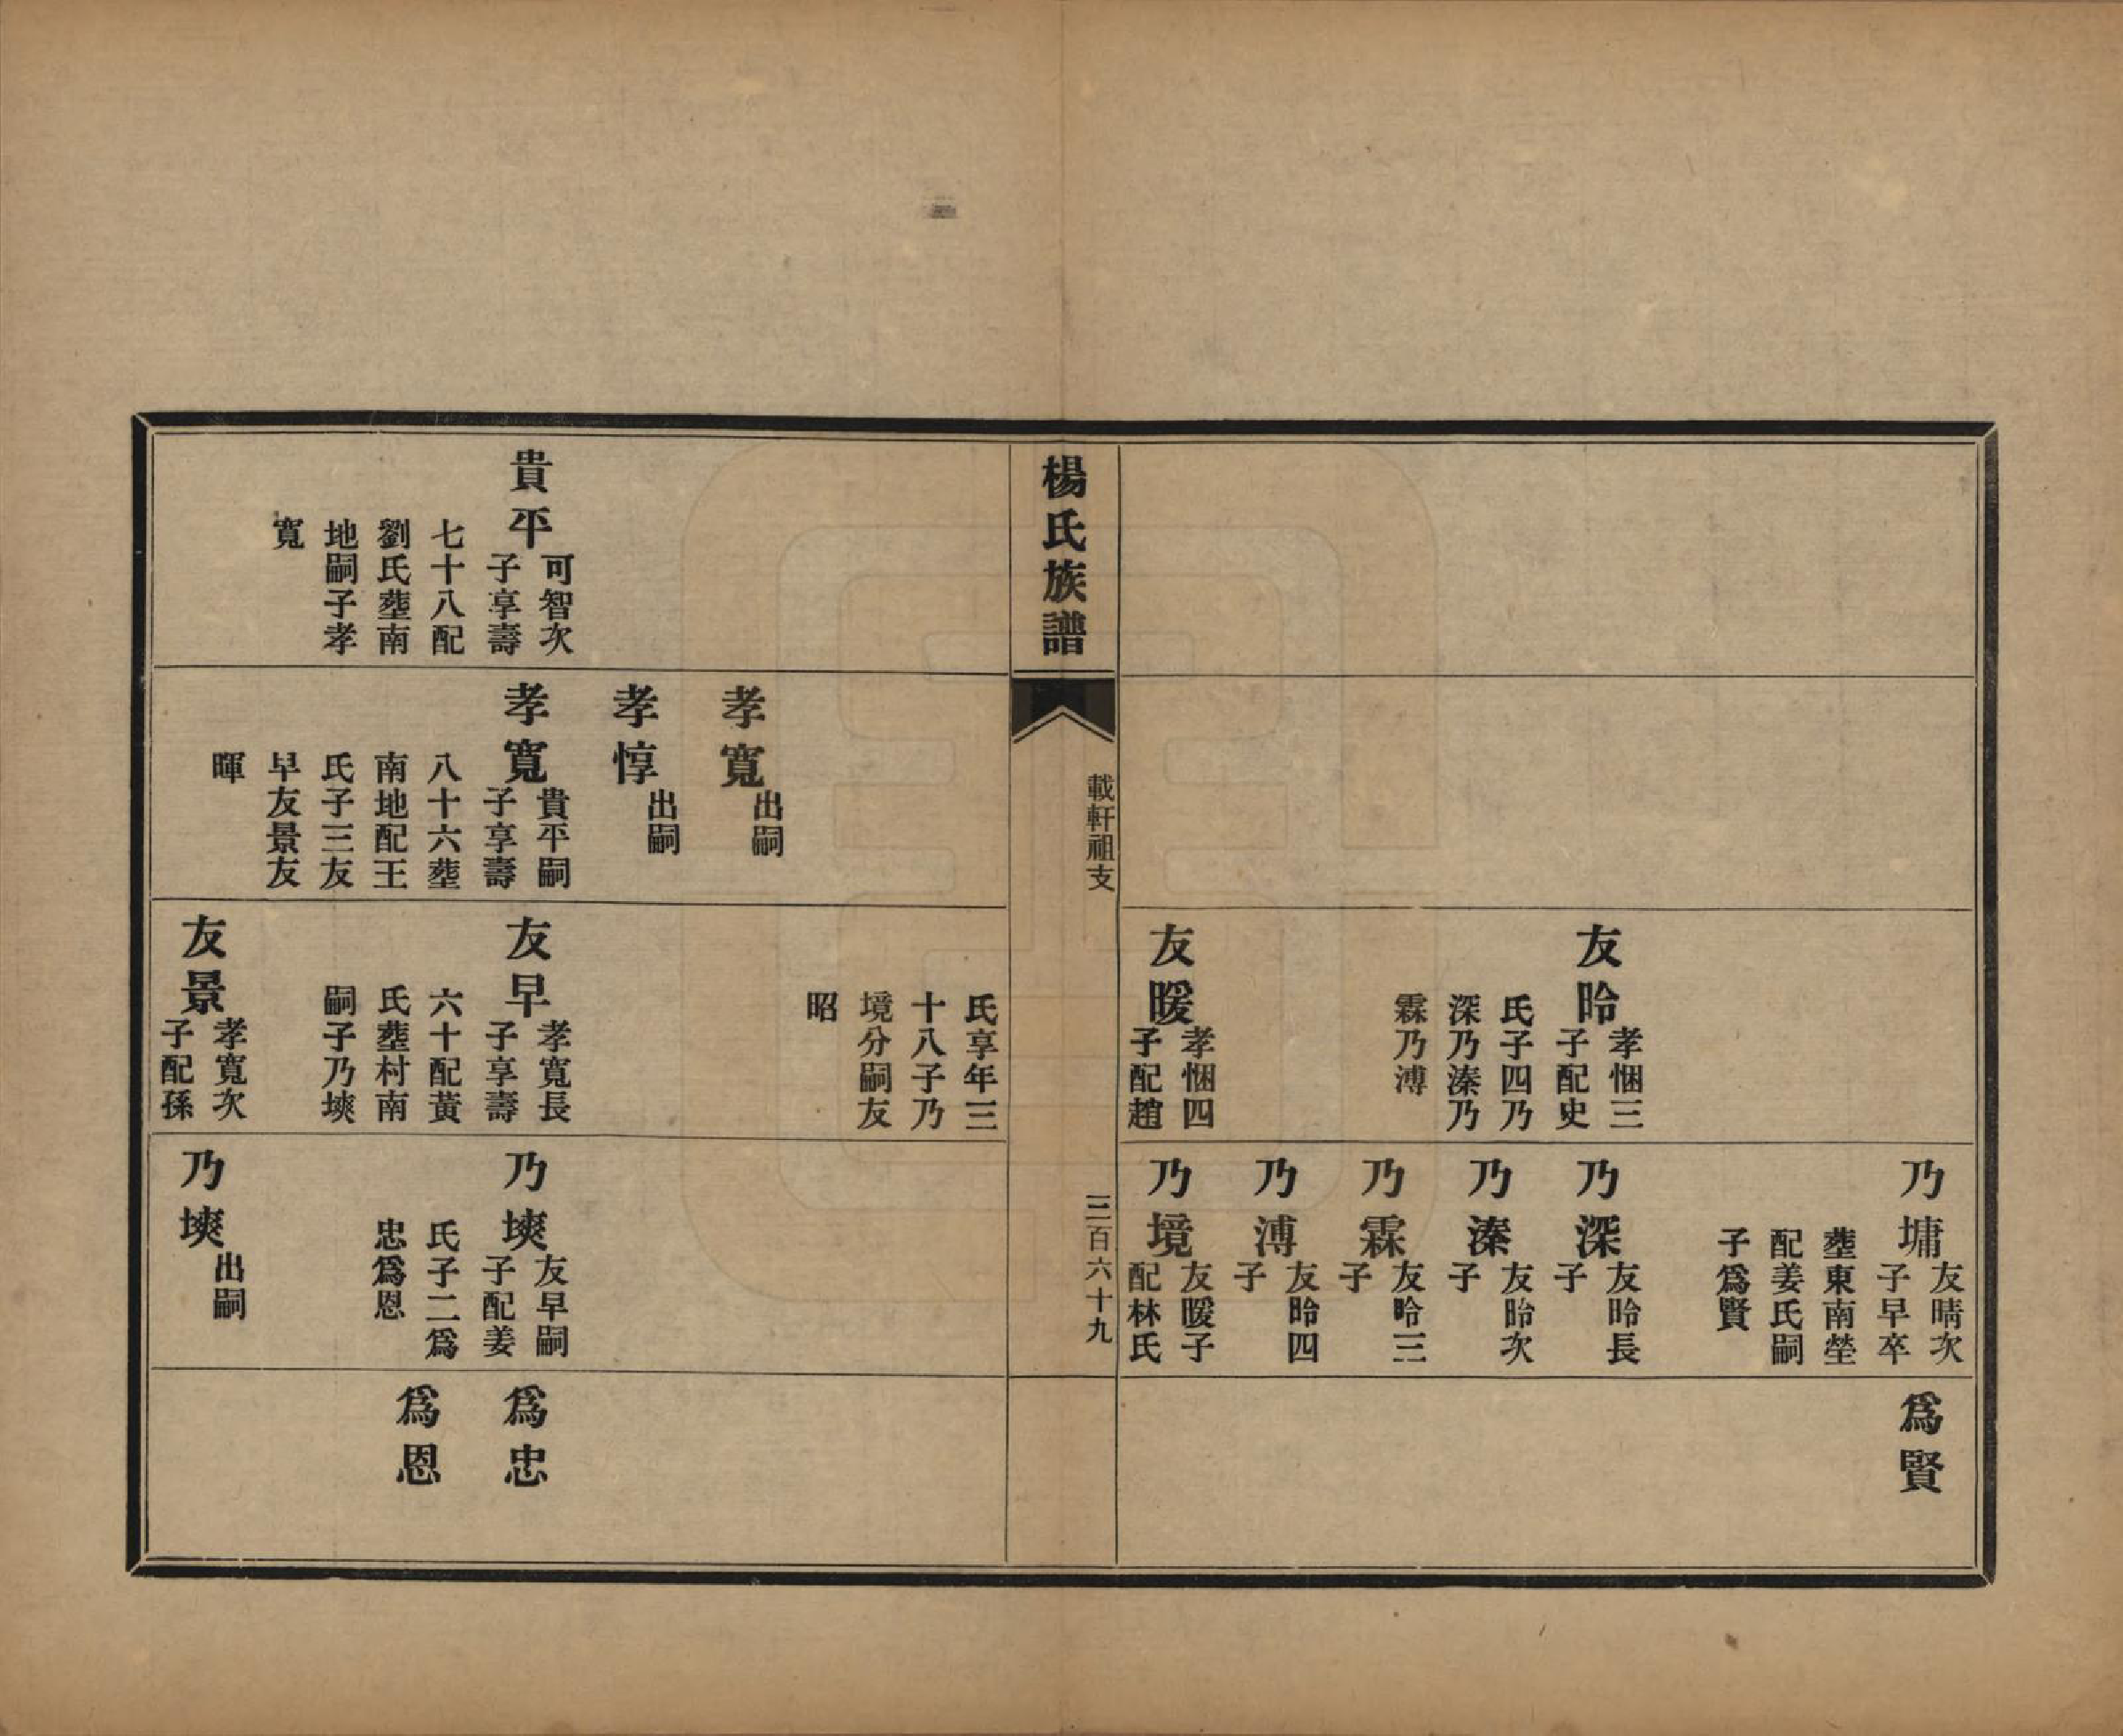 友昤
孝悃三
子配史
氏子四乃
深乃溱乃
霖乃溥
友暖
孝悃四
子配趙
乃墉
友晴次
子早卒
塟東南塋
配姜氏嗣
子爲賢
乃深
友昤長
子
乃溱
友昤次
子
乃霖
友昤三
子
乃溥
友昤四
子
乃境
友暖子
配林氏
爲賢
楊氏族譜
載軒祖支
三百六十九
貴平
可智次
子享壽
七十八配
劉氏塟南
地嗣子孝
寬
孝寬
出嗣
孝惇
出嗣
孝寬
貴平嗣
子享壽
八十六塟
南地配王
氏子三友
早友景友
暉
氏享年三
十八子乃
境分嗣友
昭
友早
孝寬長
子享壽
六十配黃
氏塟村南
嗣子乃塽
友景
孝寬次
子配孫
乃塽
友早嗣
子配姜
氏子二爲
忠爲恩
乃塽
出嗣
爲忠
爲恩